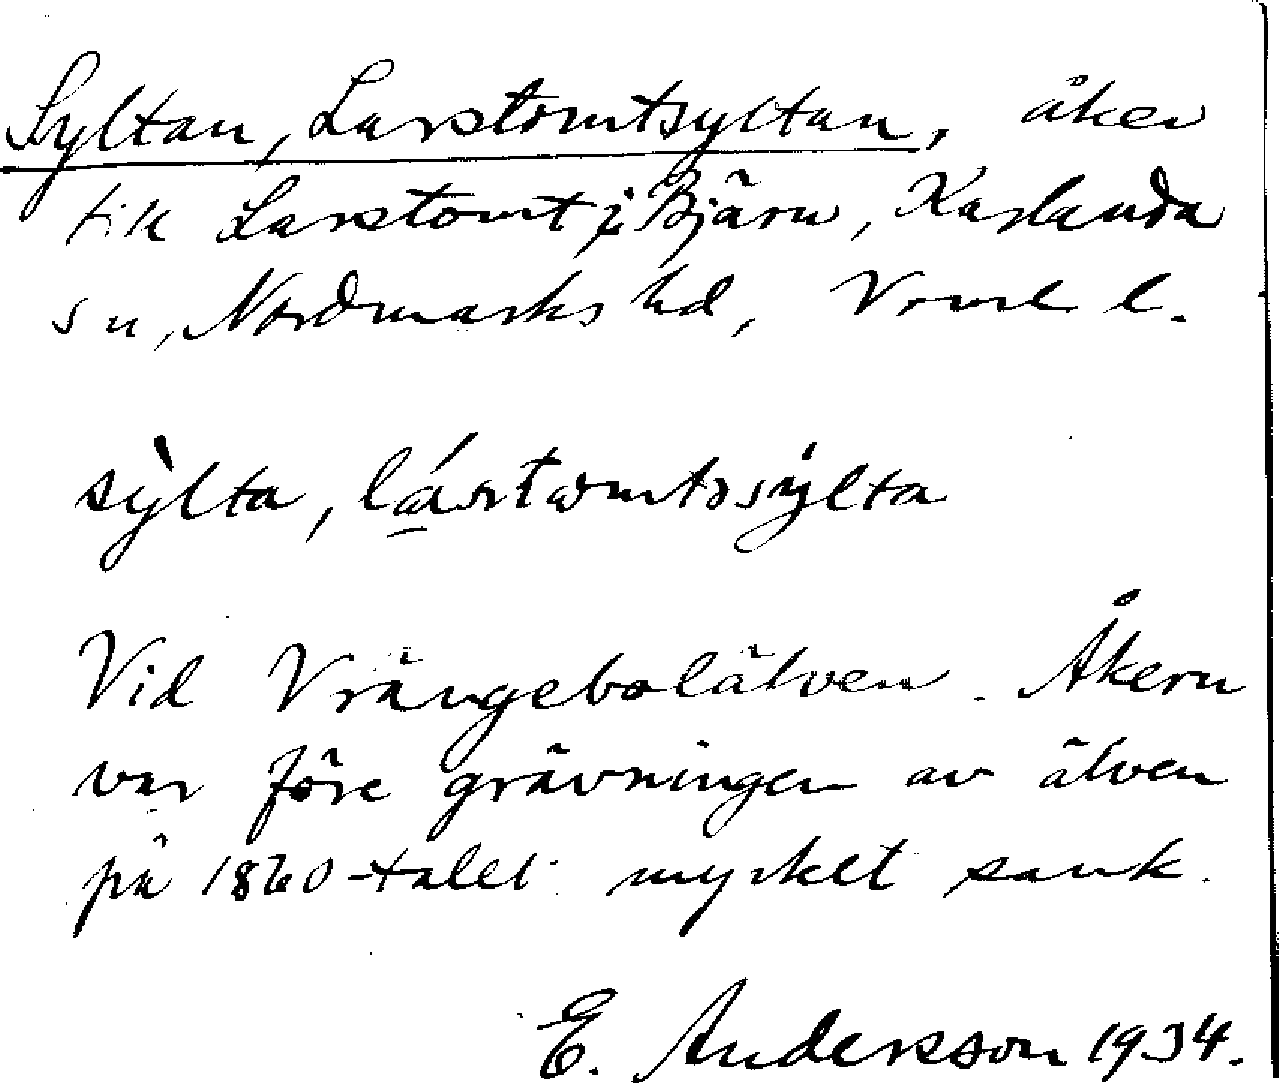 Syltan, Larstomtsyltan, åker
till Larstomt i Bjärn, Karlanda
sn, Nordmarks hd, Värml l.
sỳlta, lárstomtssỳlta
Vid Vrängebolälven. Åkern
var före grävningen av älven
på 1860-talet mycket sank.
E. Andersson 1934.